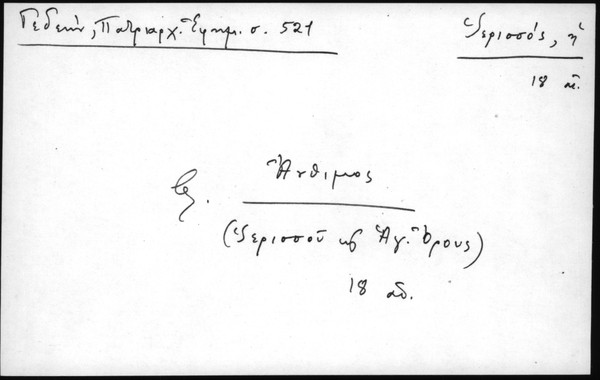 Γεδεών, Πατριαρχ. Ἐφημ. σ. 521
Ἱερισσός, ἡ
18 αἰ.
Ἐ. Ἄνθιμος
(Ἱερισσοῦ καὶ Ἁγ. Ὄρους)
18 αἰ.